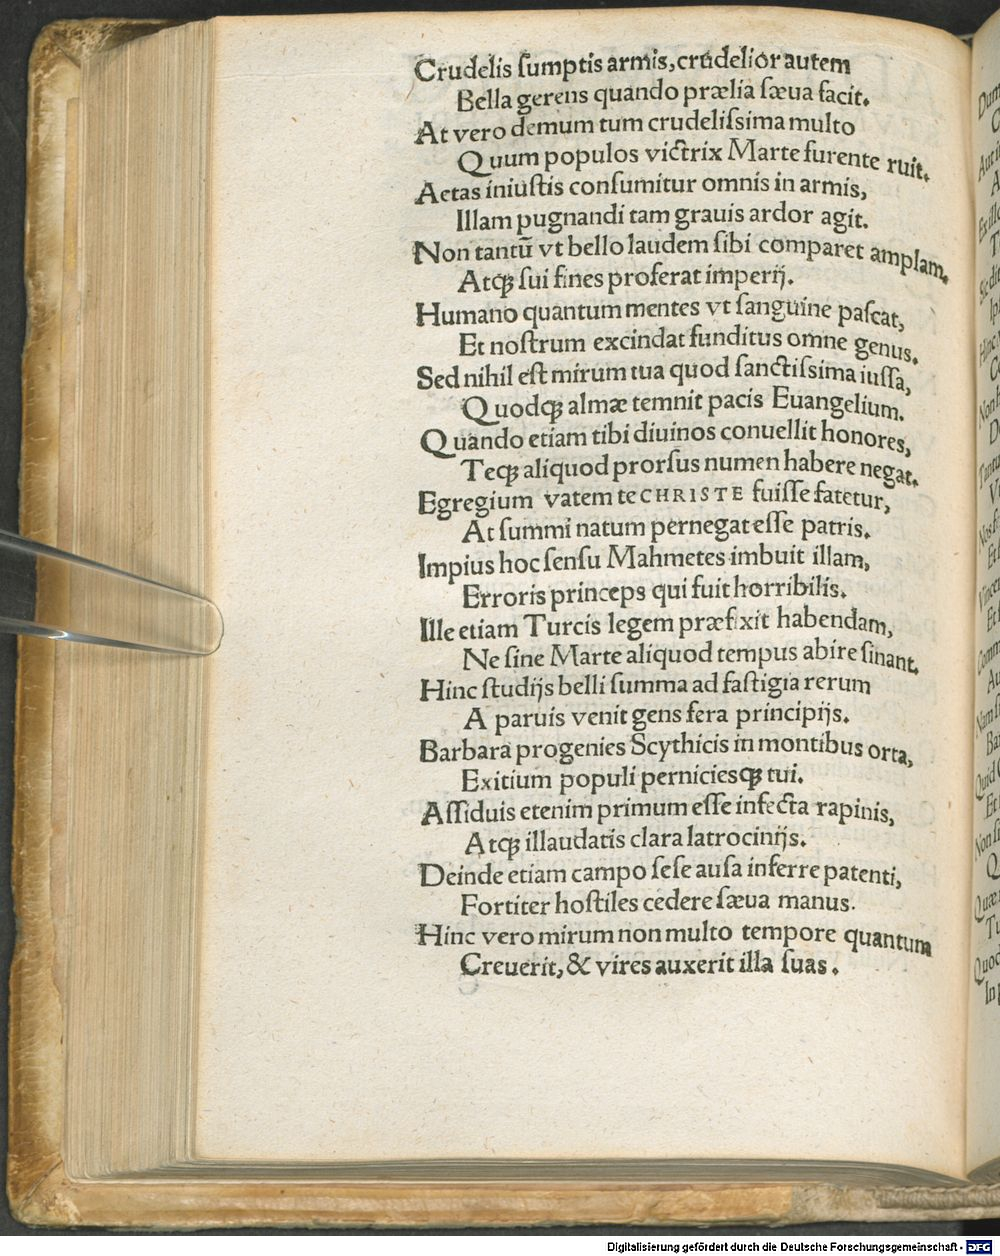 Crudelis ſumptis armis, crudelior autem
Bella gerens quando prælia ſæua facit.
At vero demum tum crudeliſsima multo
Quum populos victrix Marte furente ruit.
Aetas iniuſtis conſumitur omnis in armis,
Illam pugnandi tam grauis ardor agit.
Non tantū vt bello laudem ſibi comparet amplam,
Atqꝫ ſui fines proferat imperij.
Humano quantum mentes vt ſanguine paſcat,
Et noſtrum excindat funditus omne genus.
Sed nihil eſt mirum tua quod ſanctiſsima iuſſa,
Quodqꝫ almæ temnit pacis Euangelium.
Quando etiam tibi diuinos conuellit honores,
Teqꝫ aliquod prorſus numen habere negat.
Egregium vatem te CHRISTE fuiſſe fatetur,
At ſummi natum pernegat eſſe patris.
Impius hoc ſenſu Mahmetes imbuit illam,
Erroris princeps qui fuit horribilis.
Ille etiam Turcis legem præfixit habendam,
Ne ſine Marte aliquod tempus abire ſinant.
Hinc ſtudijs belli ſumma ad faſtigia rerum
A paruis venit gens fera principijs.
Barbara progenies Scythicis in montibus orta,
Exitium populi perniciesqꝫ tui.
Aſſiduis etenim primum eſſe infecta rapinis,
Atqꝫ illaudatis clara latrocinijs.
Deinde etiam campo ſeſe auſa inferre patenti,
Fortiter hoſtiles cedere ſæua manus.
Hinc vero mirum non multo tempore quantum
Creuerit, & vires auxerit illa ſuas.
Digitalisierung gefördert durch die Deutsche Forschungsgemeinschaft - DFG